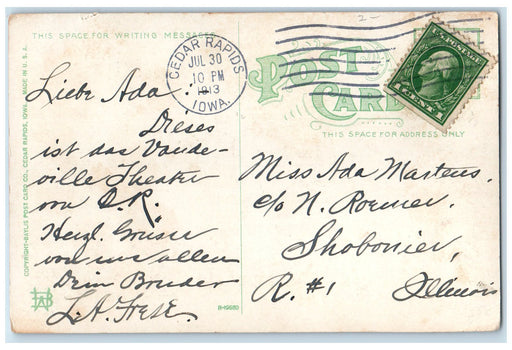 THIS SPACE FOR WRITING MESSAGES
CEDAR RAPIDS
JUL 30
10 PM
1913
IOWA.
POST CARD
THIS SPACE FOR ADDRESS ONLY
U.S. POSTAGE
1 CENT 1
COPYRIGHT-BAYLIS POST CARD CO., CEDAR RAPIDS, IOWA. MADE IN U.S.A.
Liebe Ada:
Dieses
ist das Vaude-
ville Theater
von C.R.
Herzl. Grüsse
von uns allen
Dein Bruder
L.A.
Miss Ada Martens,
c/o N. Roemer,
Shobonier,
R. #1 Illinois